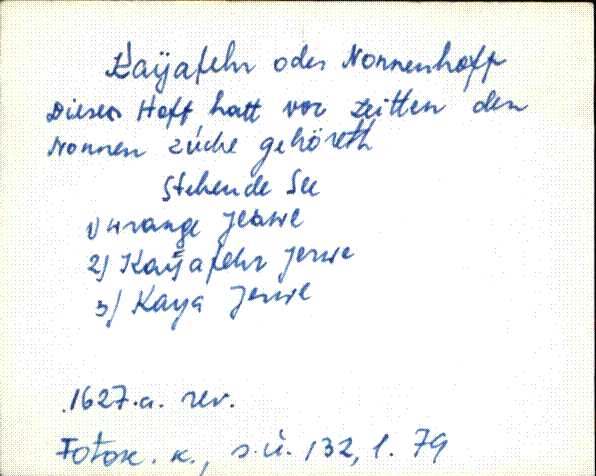 Kaÿafehr oder Nonnenhoff
Dieser Hoff hatt vor Zeitten den
Nonnen zúche gehöreth
Stehende See
1) Wrange Jerwe
2) Kaÿafehr Jerwe
3) Kaya Jerwe
1627.a. rev.
Fotok. k., s.ü. 132, l. 79